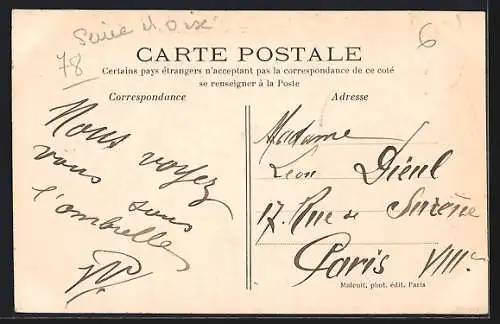 Seine et Oise
78
6
CARTE POSTALE
Certains pays étrangers n'acceptant pas la correspondance de ce coté
se renseigner à la Poste
Correspondance
Adresse
Nous voyez
vous sous
l'ombrelle
Madame
Léon Dieul
17. Rue de Surène
Paris VIIIe
Maleuit, phot. édit. Paris